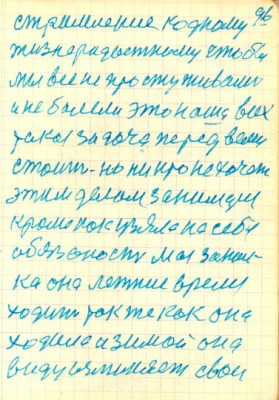 96
стремление к одному
жизнерадостному чтобы
мы все не простуживались
и не болели это наша всех
такая задача перед всеми
стоит - но никто не хочет
этим делом заниматься
кроме как взяла на себя
обязаность моя
ка она летние время
ходит так же как она
ходила и зимой она
виду изменяет свои